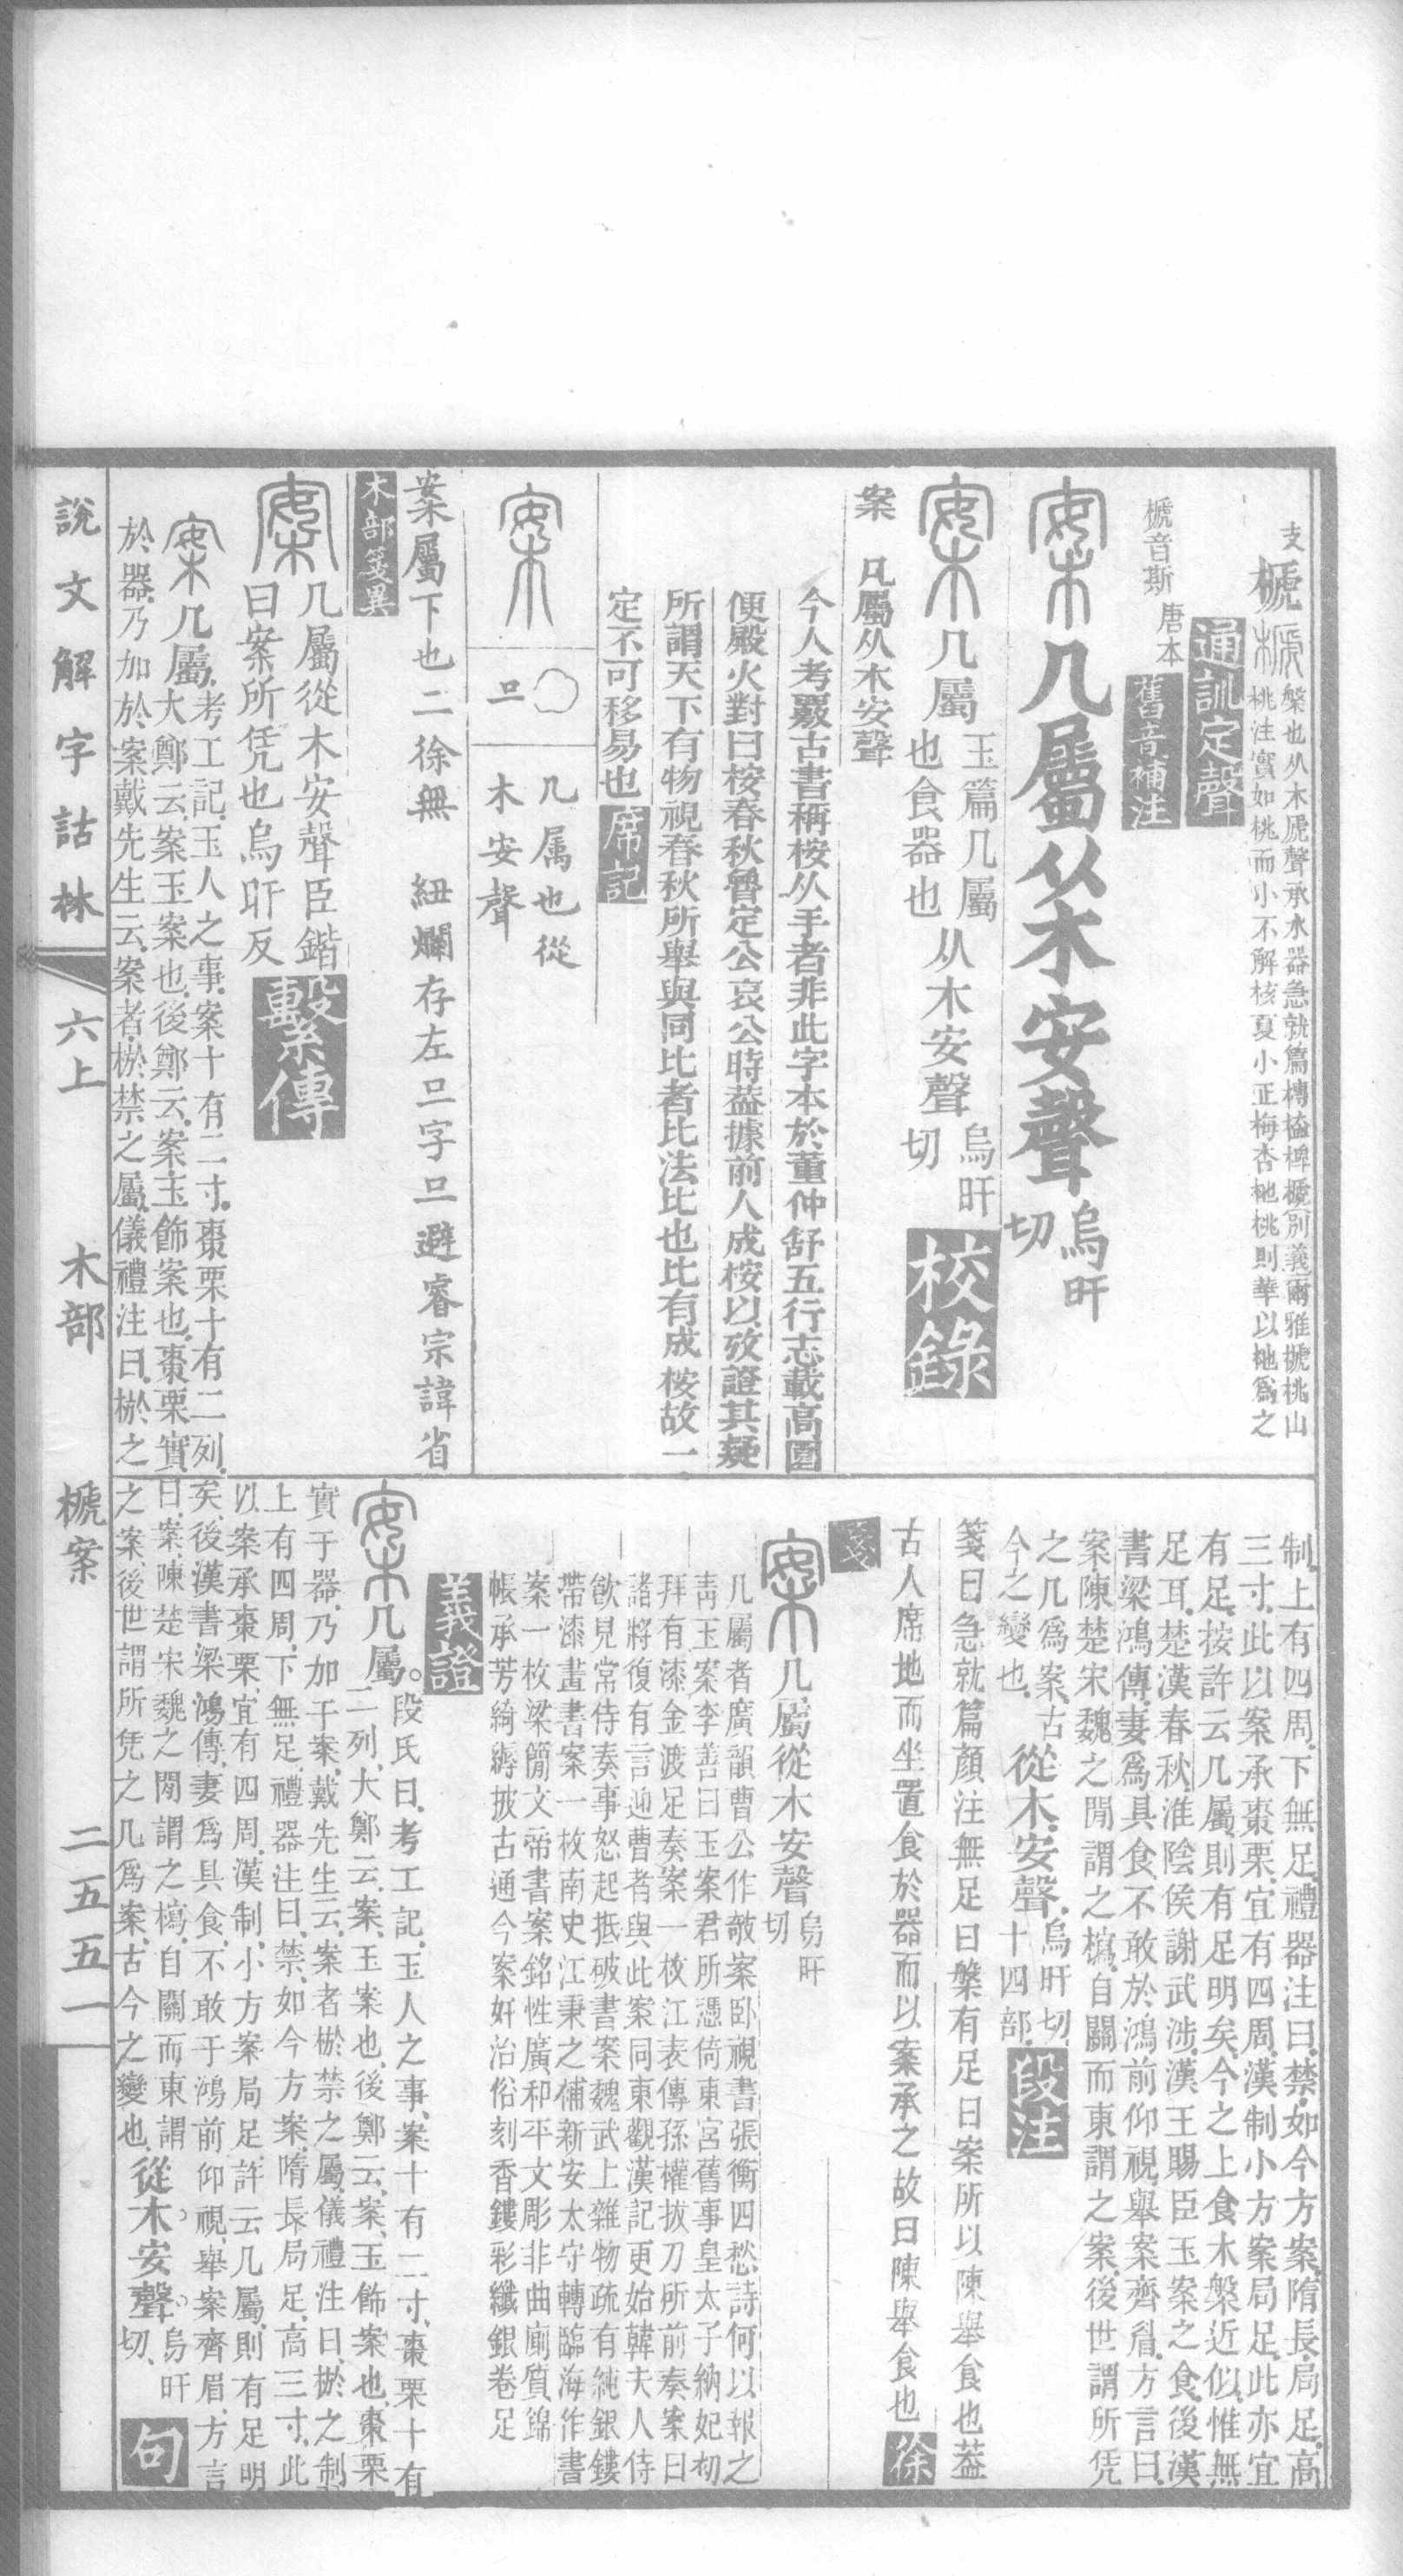 支
榹 槃也从木虒聲承水器急就篇槫榼椑榹別義爾雅榹桃山
桃注實如桃而小不解核夏小正梅杏杝桃則華以杝爲之
通訓定聲
榹音斯 唐本
舊音補注
案 几屬从木安聲 烏旰
切
案 几屬 玉篇几屬
也食器也 从木安聲 烏旰
切 校錄
案 凡屬从木安聲
今人考覈古書稱桉从手者非此字本於董仲舒五行志載高園
便殿火對曰桉春秋魯定公哀公時葢據前人成桉以攷證其疑
所謂天下有物視春秋所舉與同比者比法比也比有成桉故一
定不可移易也 席記
案 〇 几属也從
旦 木安聲
案屬下也二徐無 紐爛存左旦字旦避睿宗諱省
木部箋異
案 几屬從木安聲臣鍇
曰案所凭也烏旰反 繫傳
案 几屬 考工記玉人之事案十有二寸棗栗十有二列
大鄭云案玉案也後鄭云案玉飾案也棗栗實
於器乃加於案戴先生云案者棜禁之屬儀禮注曰棜之
制上有四周下無足禮器注曰禁如今方案隋長局足高
三寸此以案承棗栗宜有四周漢制小方案局足此亦宜
有足按許云几屬則有足明矣今之上食木槃近似惟無
足耳楚漢春秋淮陰侯謝武涉漢王賜臣玉案之食後漢
書梁鴻傳妻爲具食不敢於鴻前仰視舉案齊眉方言曰
案陳楚宋魏之閒謂之㯕自關而東謂之案後世謂所凭
之几爲案古
今之變也 從木安聲 烏旰切
十四部 段注
箋曰急就篇顏注無足曰槃有足曰案所以陳舉食也葢
古人席地而坐置食於器而以案承之故曰陳舉食也 徐
箋
案 几屬從木安聲 烏旰
切
几屬者廣韻曹公作敧案卧視書張衡四愁詩何以報之
靑玉案李善曰玉案君所憑倚東宮舊事皇太子納妃初
拜有漆金渡足奏案一枚江表傳孫權拔刀所前奏案曰
諸將復有言迎曹者與此案同東觀漢記更始韓夫人侍
飮見常侍奏事怒起抵破書案魏武上雜物疏有純銀鏤
帶漆畫書案一枚南史江秉之補新安太守轉臨海作書
案一枚梁簡文帝書案銘性廣和平文彫非曲廁質錦
帳承芳綺縟披古通今察奸治俗刻香鏤彩纖銀卷足
義證
案 几屬 段氏曰考工記玉人之事案十有二寸棗栗十有
二列大鄭云案玉案也後鄭云案玉飾案也棗栗
實于器乃加于案戴先生云案者棜禁之屬儀禮注曰棜之制
上有四周下無足禮器注曰禁如今方案隋長局足高三寸此
以案承棗栗宜有四周漢制小方案局足許云几屬則有足明
矣後漢書梁鴻傳妻爲具食不敢于鴻前仰視舉案齊眉方言
曰案陳楚宋魏之閒謂之㯕自關而東謂
之案後世謂所凭之几爲案古今之變也 從木安聲 烏旰
切 句
說文解字詁林 六上 木部 榹案 二五五一